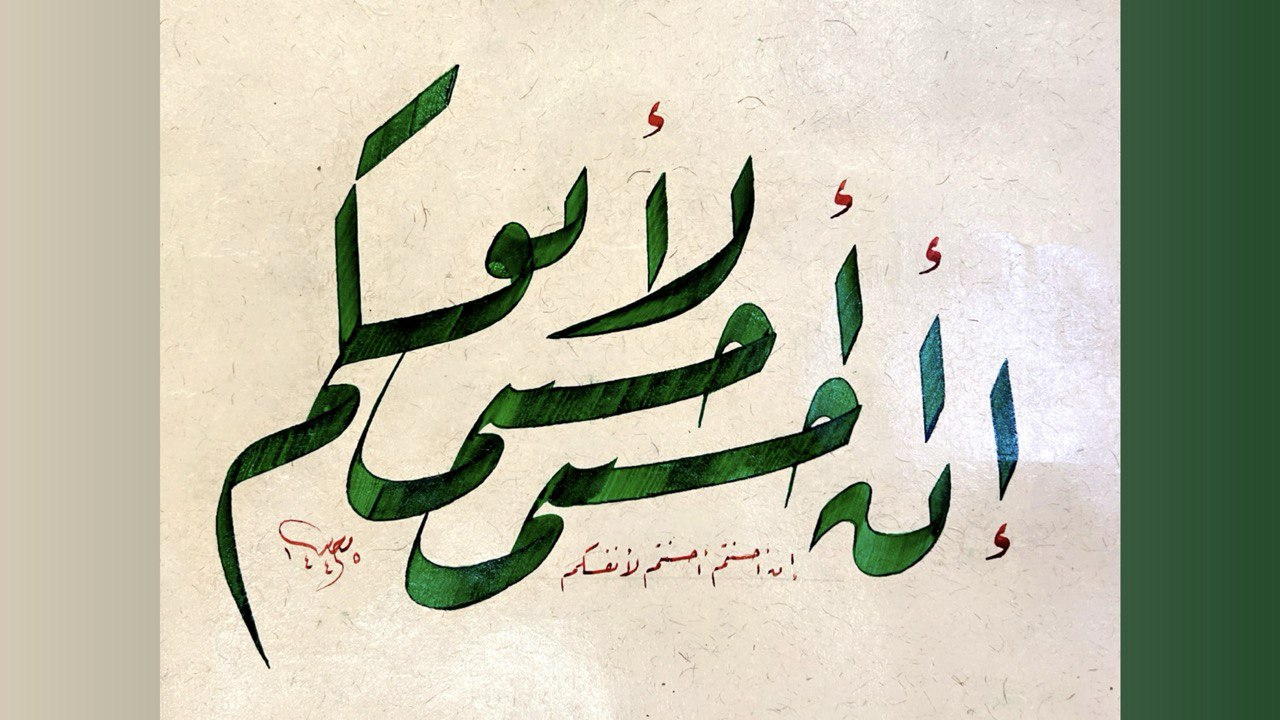 إن أحسنتم أحسنتم لأنفسكم
إن أحسنتم أحسنتم لأنفسكم
١٤٤٥